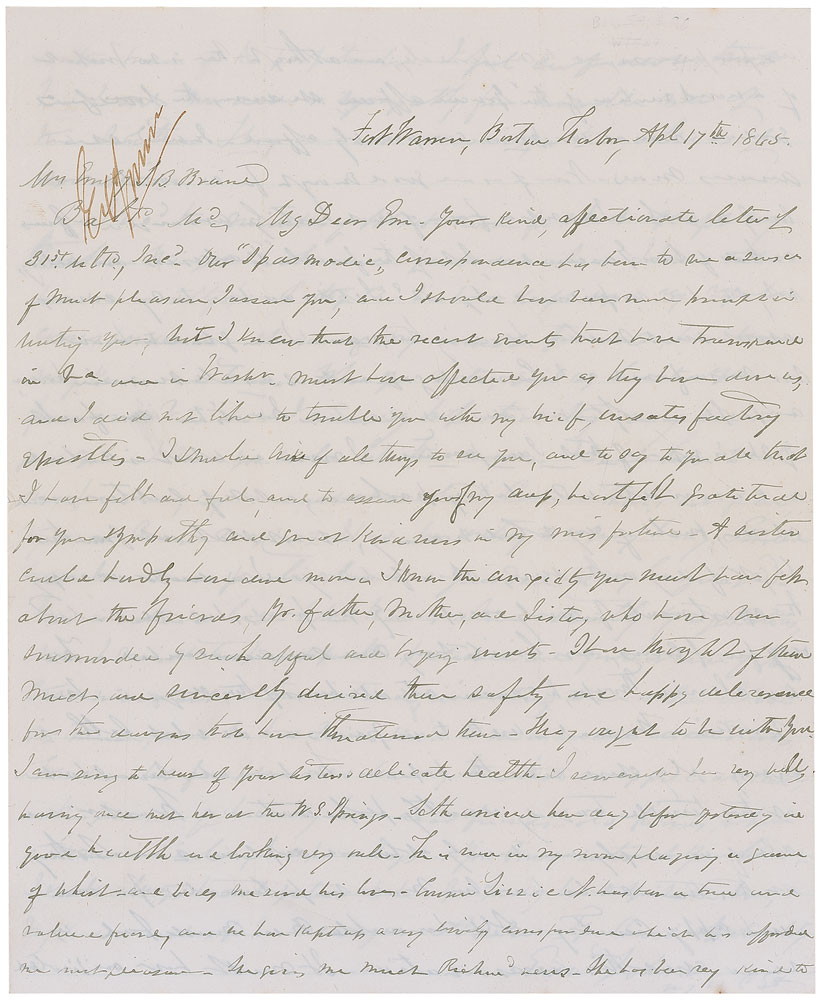 Fort Warren, Boston Harbor, Apl 17th 1865.
Mrs Em B. Braine
Balto Md, My Dear Em. Your kind, affectionate letter of
31st Ulto, Rec'd. Our "Spasmodic" correspondence has been to me a source
of much pleasure, I assure you; and I should have been more prompt in
writing you, but I knew that the recent events that have transpired
in Va and in Washn. must have affected you as they have done us,
and I did not like to trouble you with my brief, unsatisfactory
epistles - I should like of all things to see you, and to say to you all that
I have felt and feel, and to assure you of my deep, heartfelt gratitude
for your sympathy and great kindness in my misfortune - A sister
could hardly have done more. I know the anxiety you must have felt
about the friends, Yr. father, Mother, and Sister, who have been
surrounded by such awful and trying events - I have thought of them
much, and sincerely desired their safety and happy deliverance
from the dangers that have threatened them - They ought to be with you.
I am sorry to hear of your sisters delicate health - I remember her very well,
having once met her at the W. S. Springs - Seth arrived here day before yesterday in
good health and looking very well - He is now in my room playing a game
of whist and bids me send his love - Cousin Lizzie N. has been a true and
valued friend, and we have kept up a very lively correspondence which has afforded
me much pleasure - She gives me much Richmd news - She has been very kind to